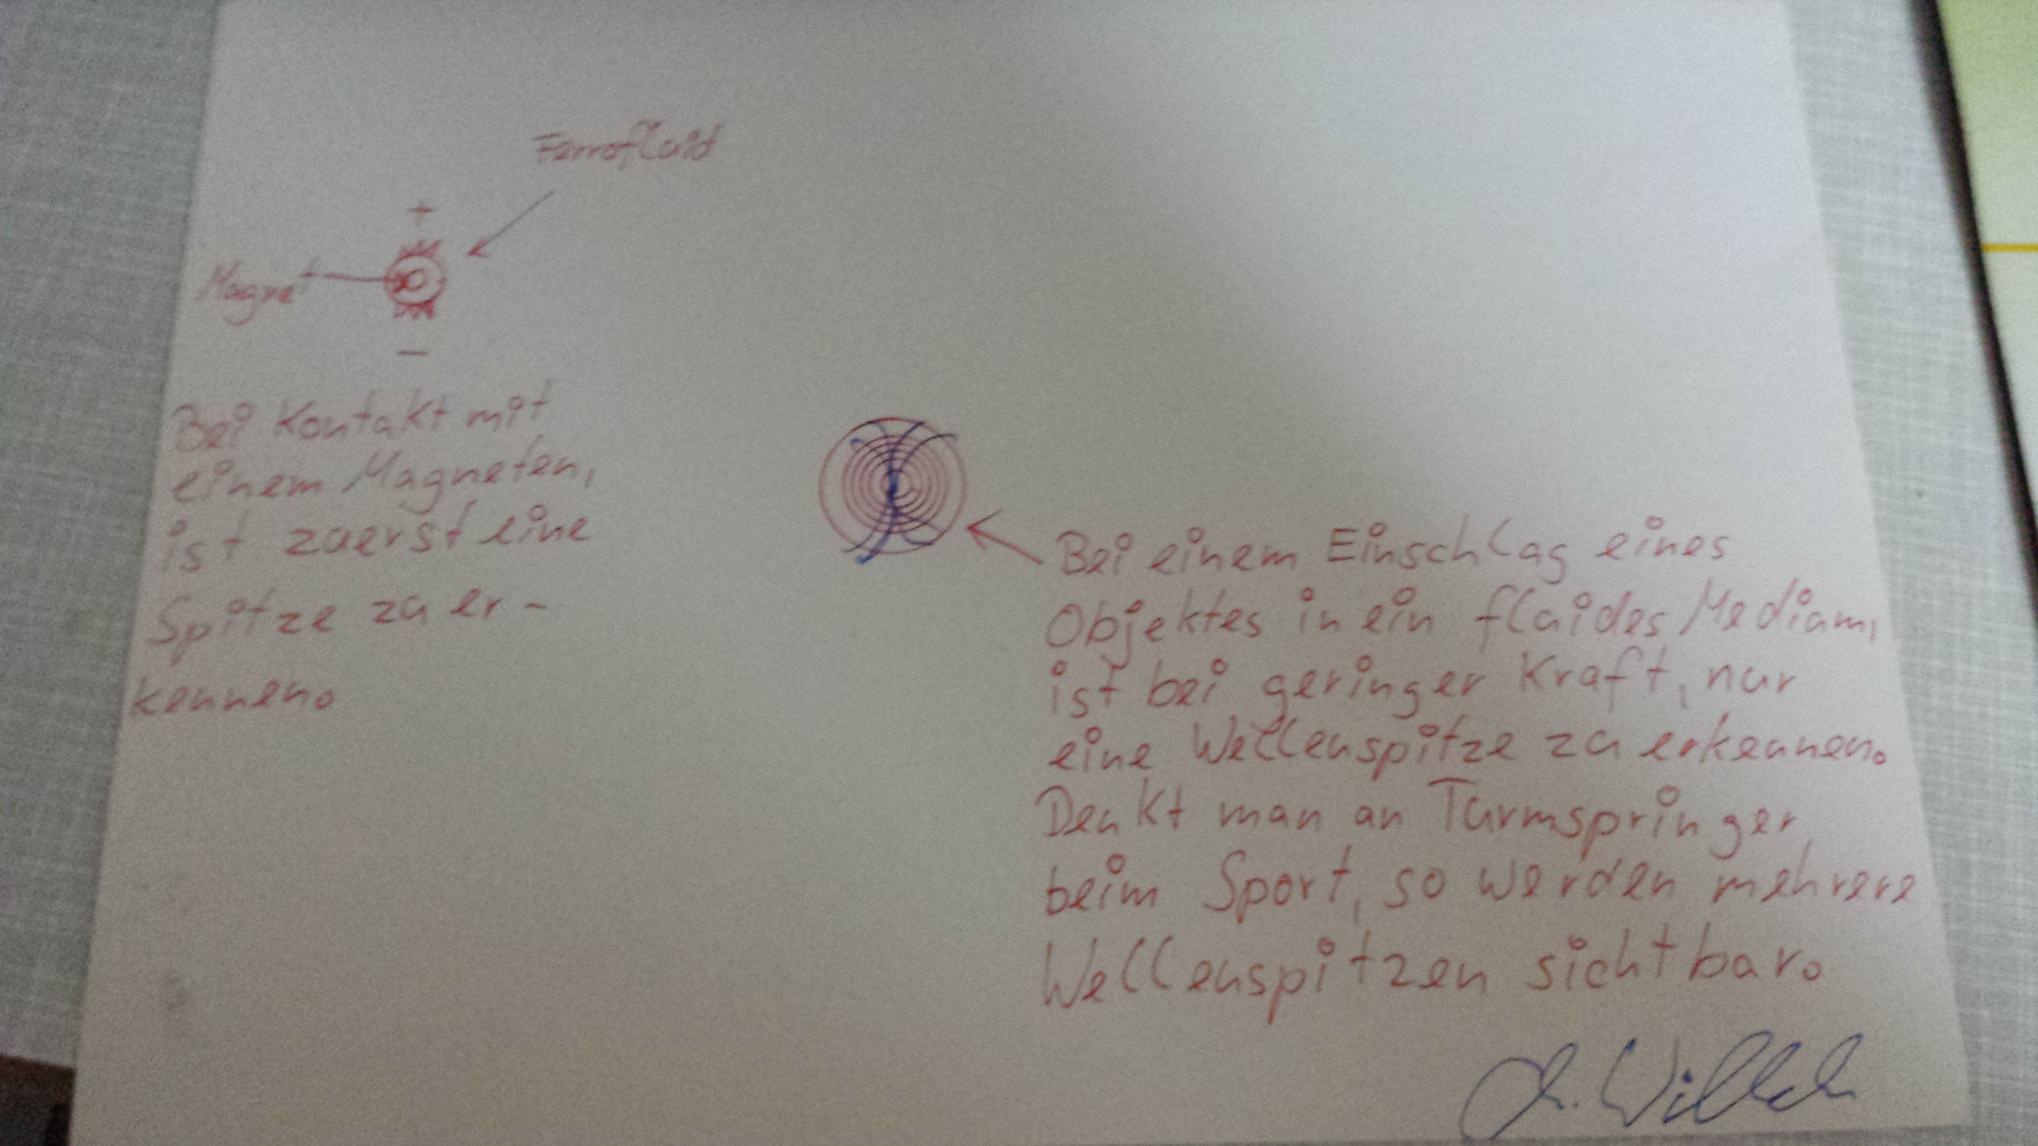 Ferrofluid
+
Magnet
-
Bei Kontakt mit
einem Magneten,
ist zuerst eine
Spitze zu er-
kennen.
Bei einem Einschlag eines
Objektes in ein fluides Medium,
ist bei geringer Kraft, nur
eine Wellenspitze zu erkennen.
Denkt man an Turmspringer
beim Sport, so werden mehrere
Wellenspitzen sichtbar.